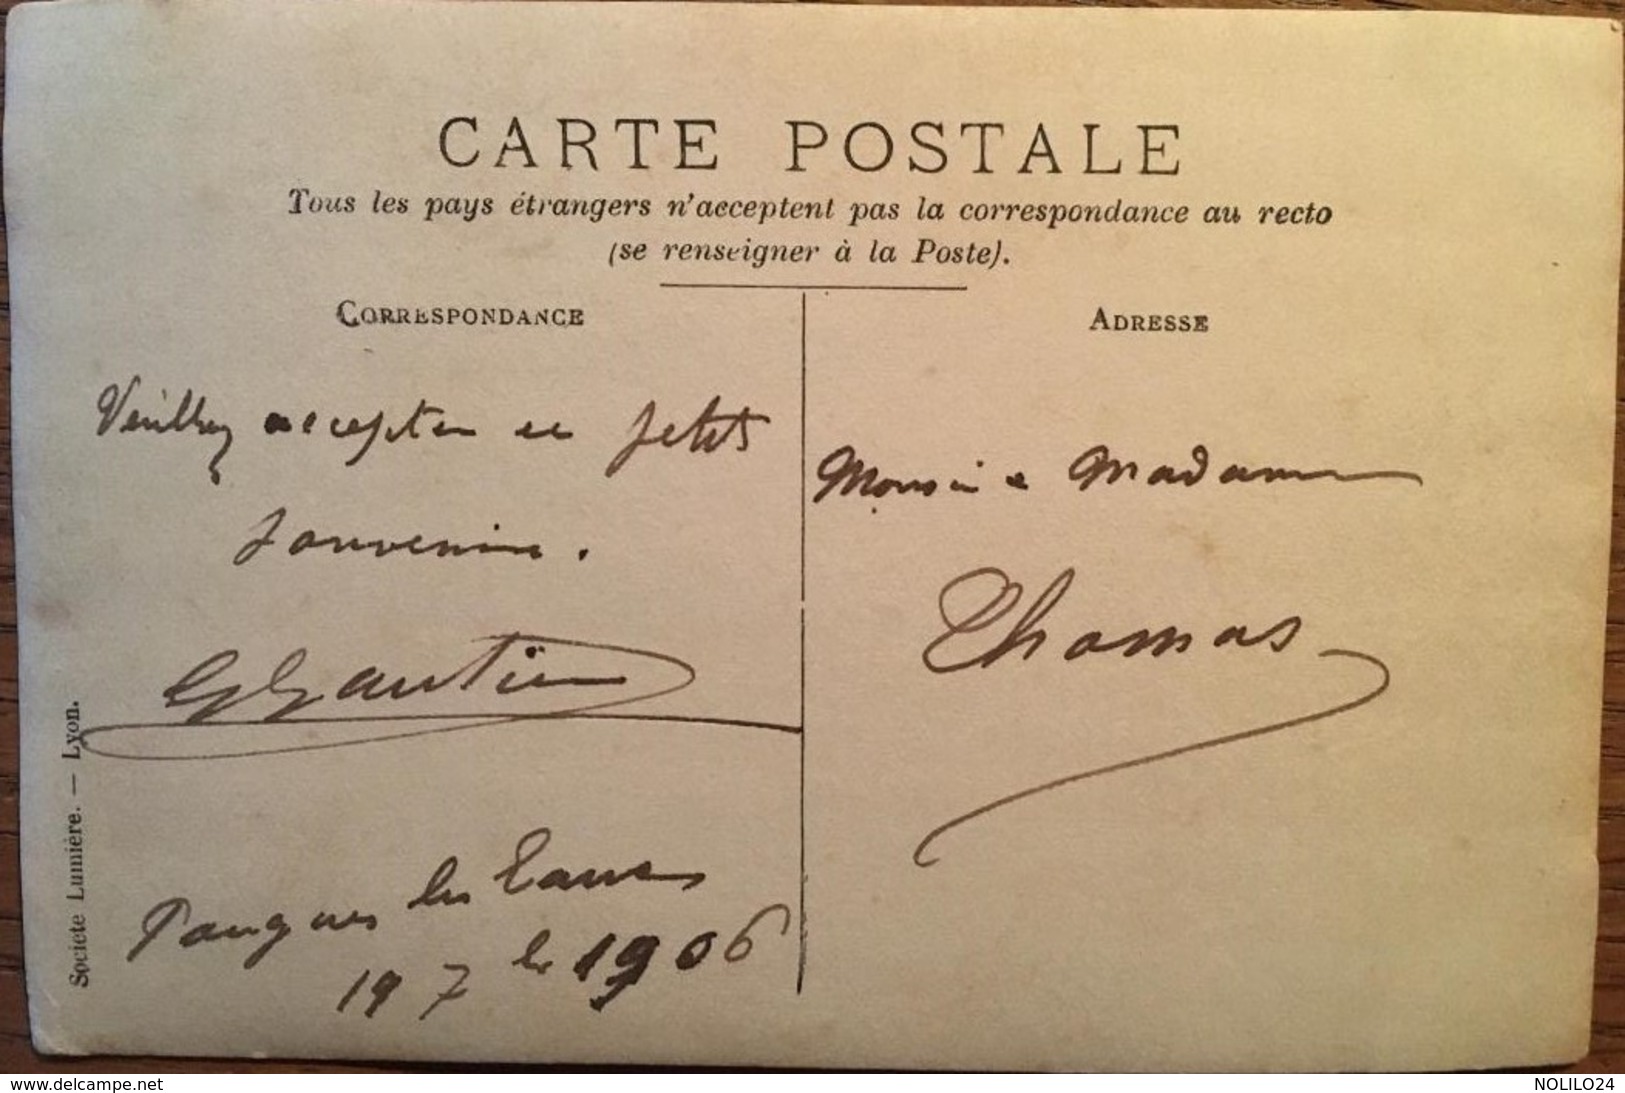 CARTE POSTALE
Tous les pays étrangers n'acceptent pas la correspondance au recto
(se renseigner à la Poste).
CORRESPONDANCE
ADRESSE
Veuillez accepter ce petits
souvenir.
G Gautier
Pougues les Eaux
le
19 7 1906
Monsieur Madame
Thomas
Societe Lumière. — Lyon.
www.delcampe.net
NOLILO24